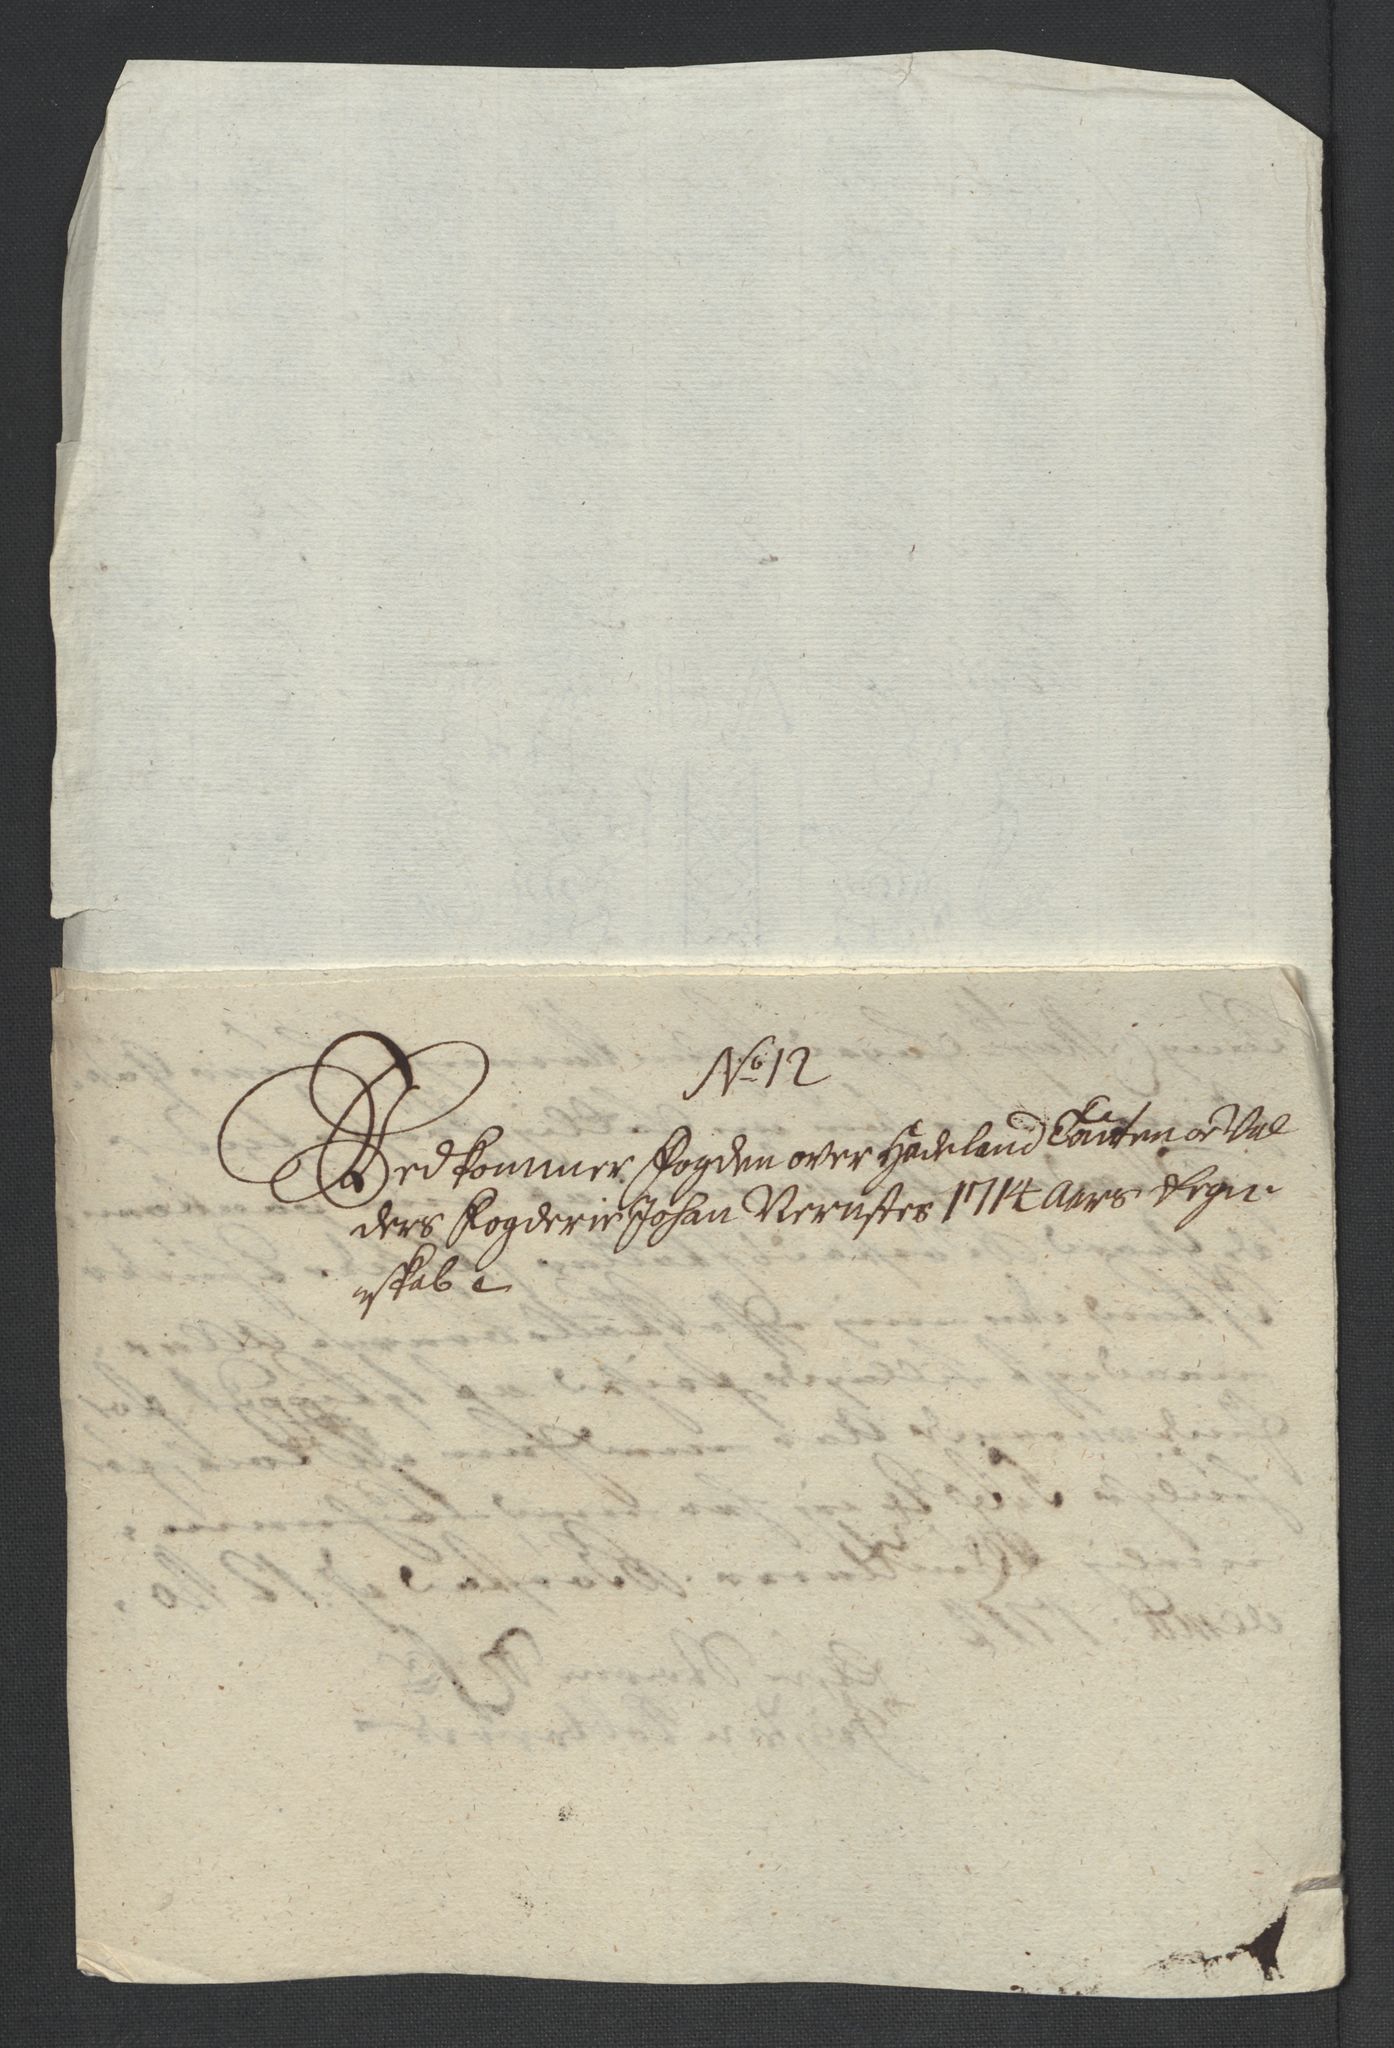 No 12
Vedkommer Fogden over Hadeland Toten oc Val
ders Fogderie Johan Vernstes 1714 Aars Regn-
skab